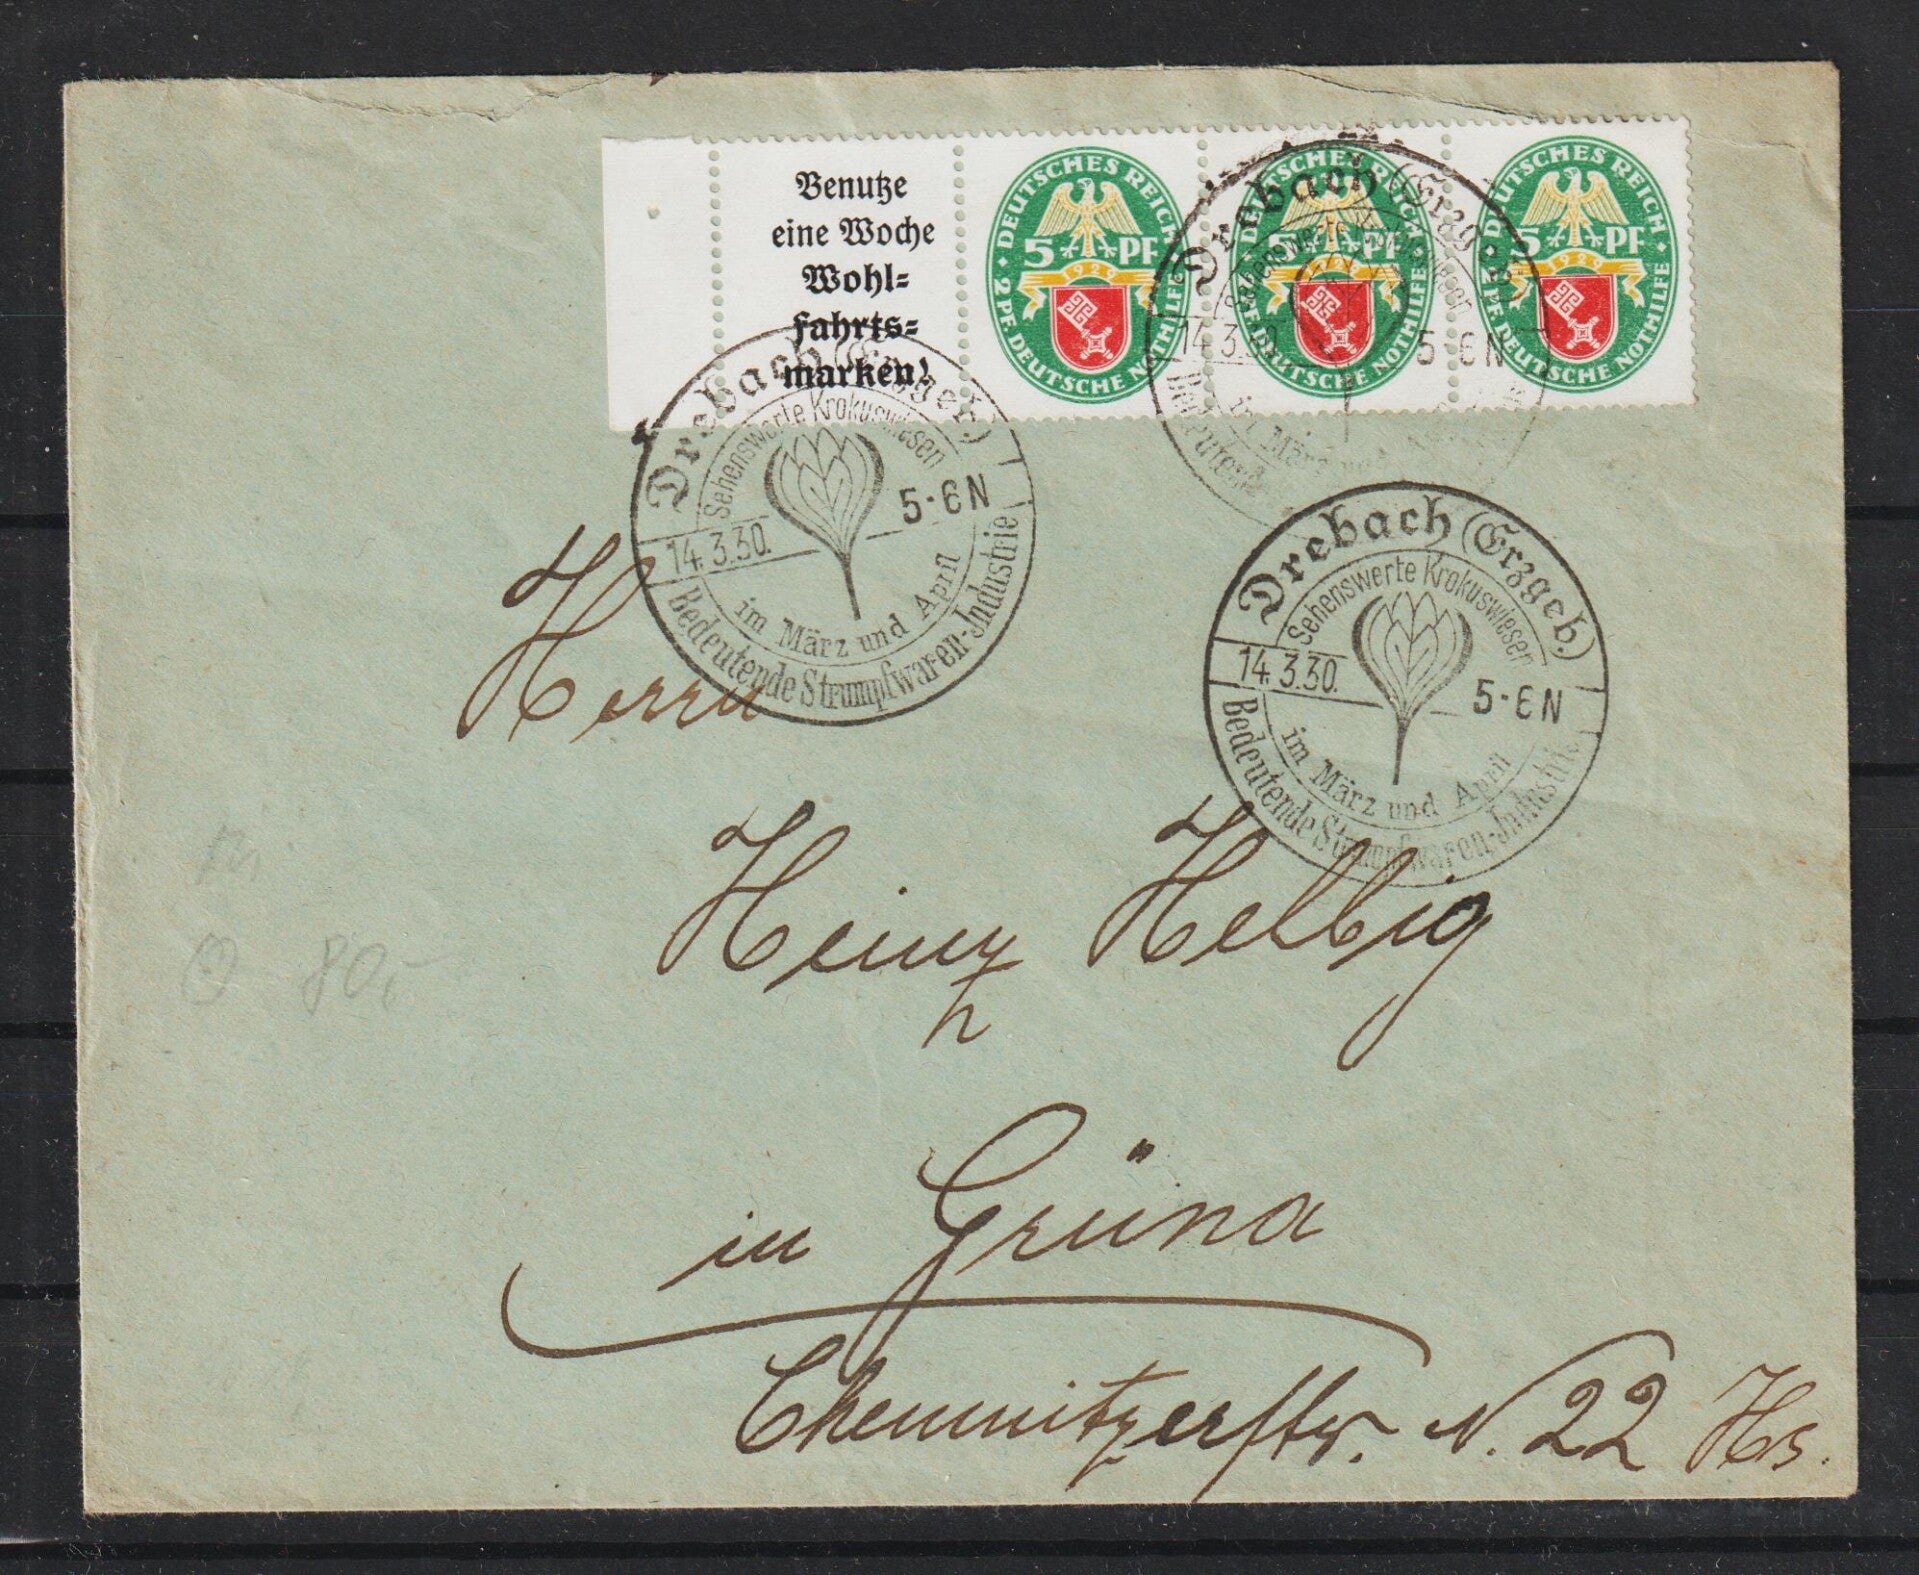 Benutze
eine Woche
Wohl=
fahrts=
marken!
DEUTSCHES REICH
5 PF
1929
+ 2 PF. DEUTSCHE NOTHILFE
DEUTSCHES REICH
5 PF
1929
+ 2 PF. DEUTSCHE NOTHILFE
DEUTSCHES REICH
5 PF
1929
+ 2 PF. DEUTSCHE NOTHILFE
Drebach (Erzgeb.)
Sehenswerte Krokuswiesen
14.3.30. 5-6 N
im März und
Bedeutende
Drebach (Erzgeb.)
Sehenswerte Krokuswiesen
14.3.30. 5-6 N
im März und April
Bedeutende Strumpfwaren-Industrie
Drebach (Erzgeb.)
Sehenswerte Krokuswiesen
14.3.30. 5-6 N
im März und April
Bedeutende Strumpfwaren-Industrie
Herrn
Heinz Helbig
in Grüna
Chemnitzerstr. N. 22 Hs.
80,-